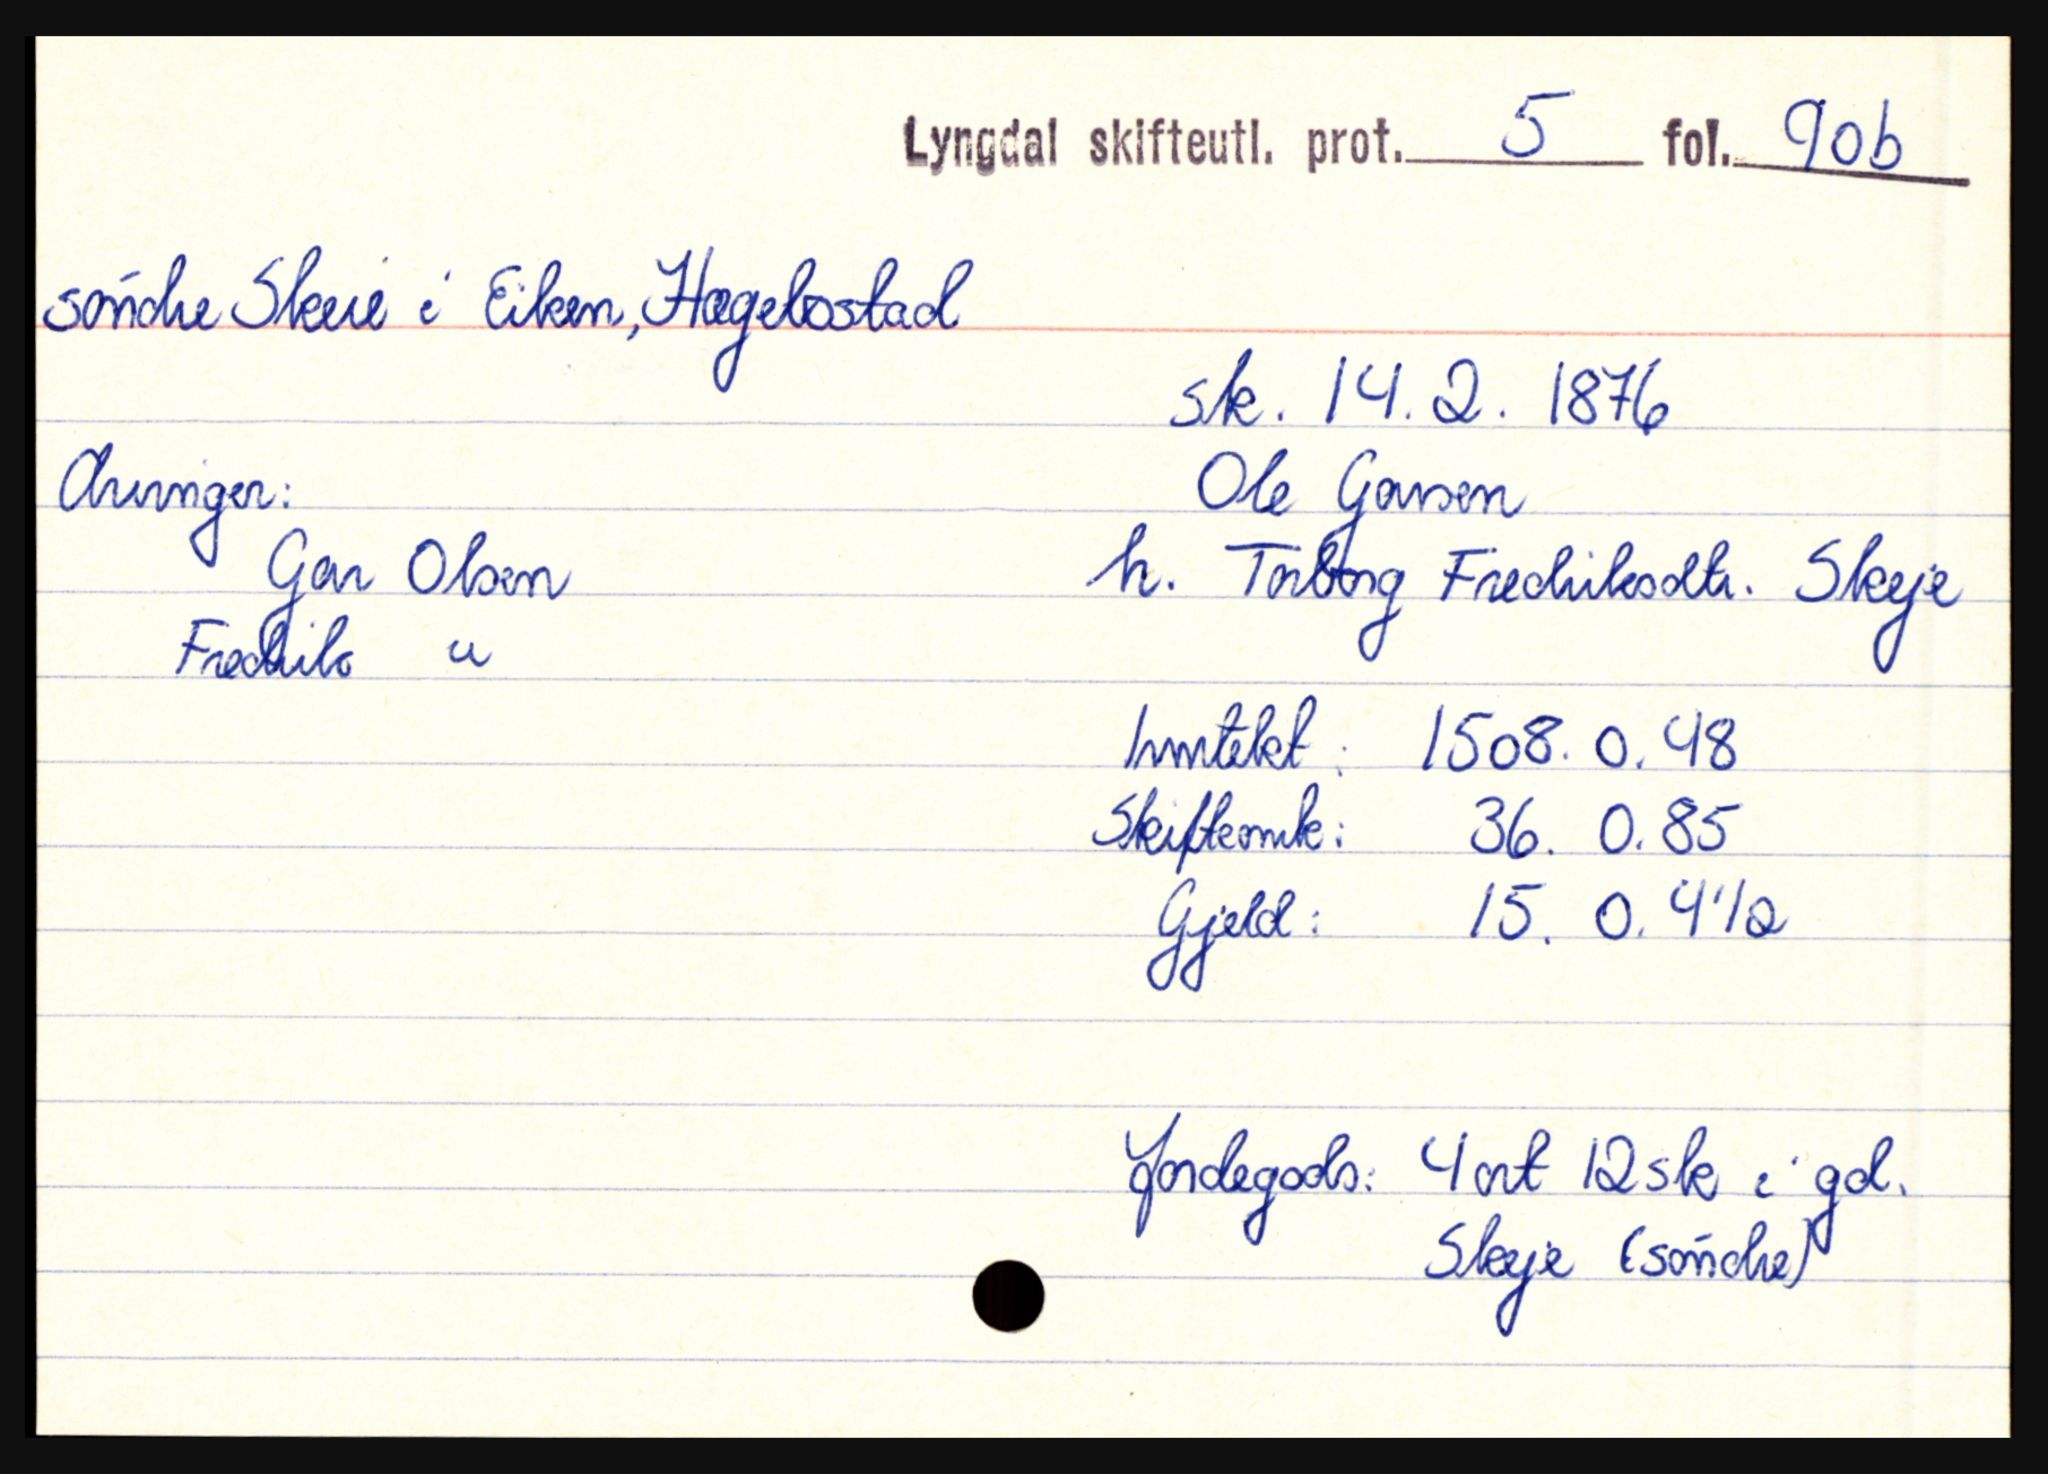 Lyngdal skifteutl. prot. 5 fol. 90b
söndre Skeie i Eiken, Hægebostad
sk. 14. 2. 1876
Arvinger:
Ole Garsen
Gar Olsen
h. Torborg Fredriksdtr. Skeje
Fredrik "
Inntekt: 1508. 0. 48
Skifteomk: 36. 0. 85
Gjeld: 15. 0. 4 1/2
Jordegods: 4 ort 12 sk i gd.
Skeje (söndre)